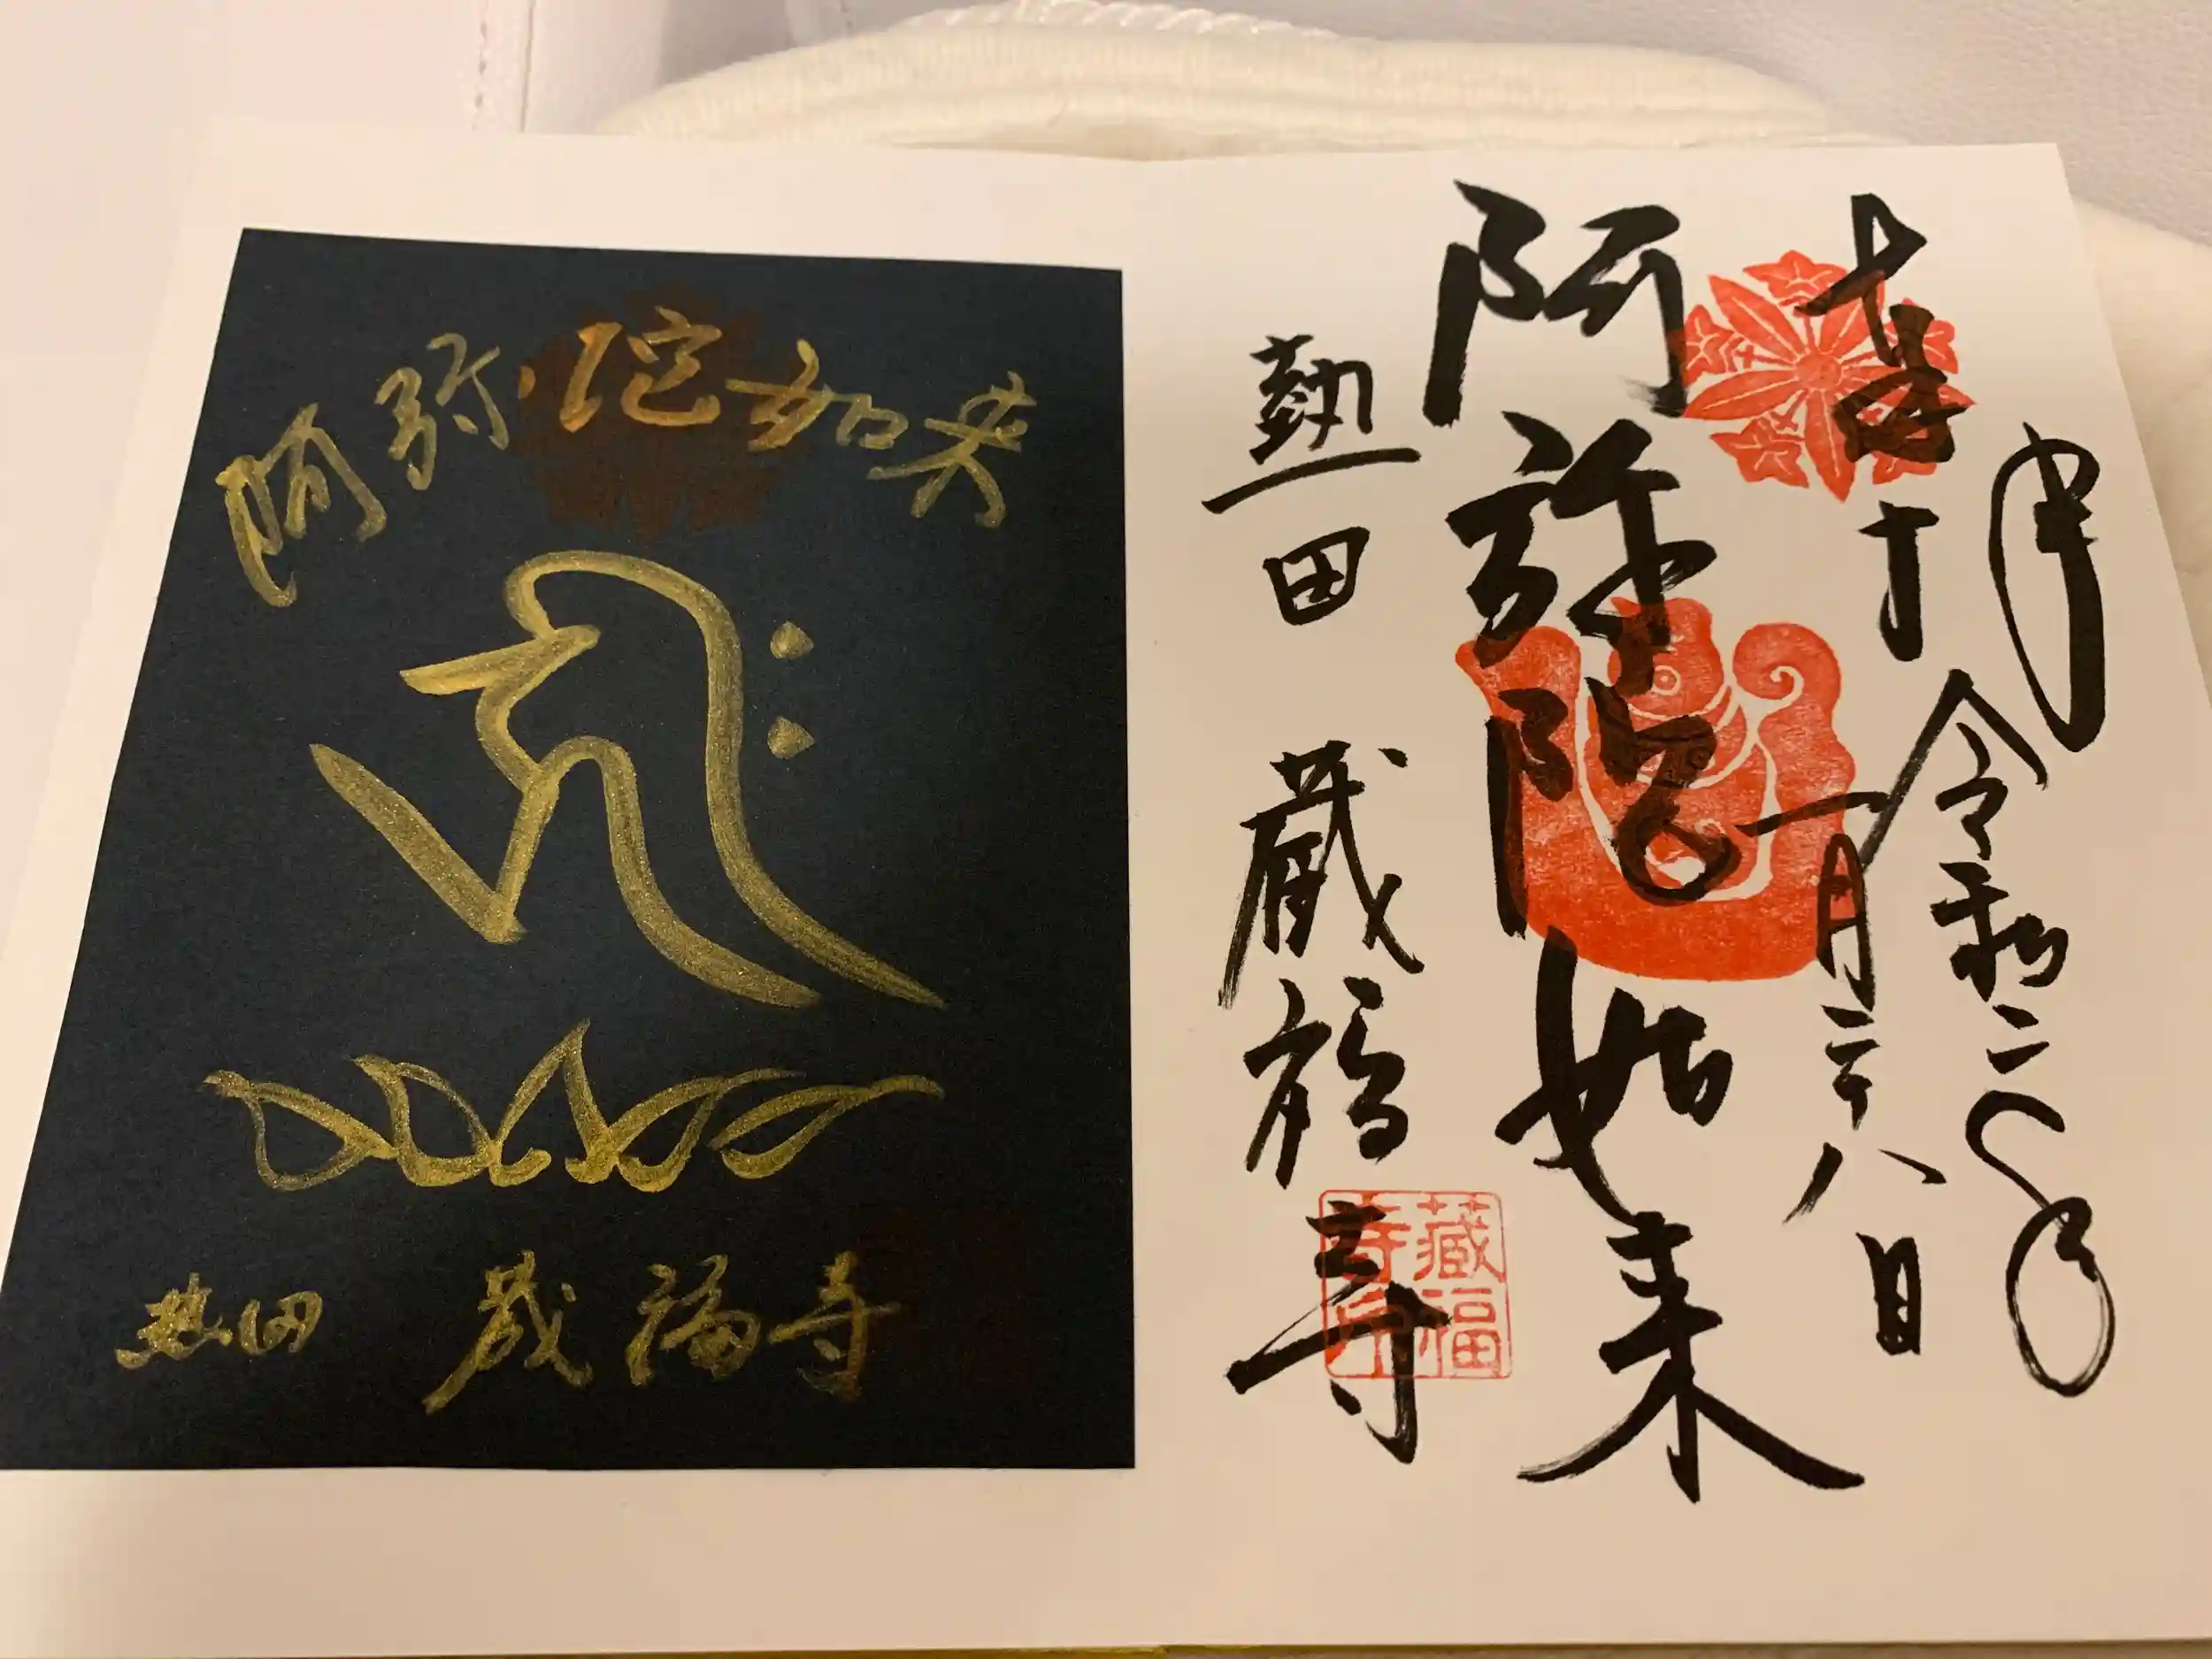 令和二年
一月二十八日
阿弥陀如来
熱田 蔵福寺
藏福寺印
阿弥陀如来
熱田 蔵福寺